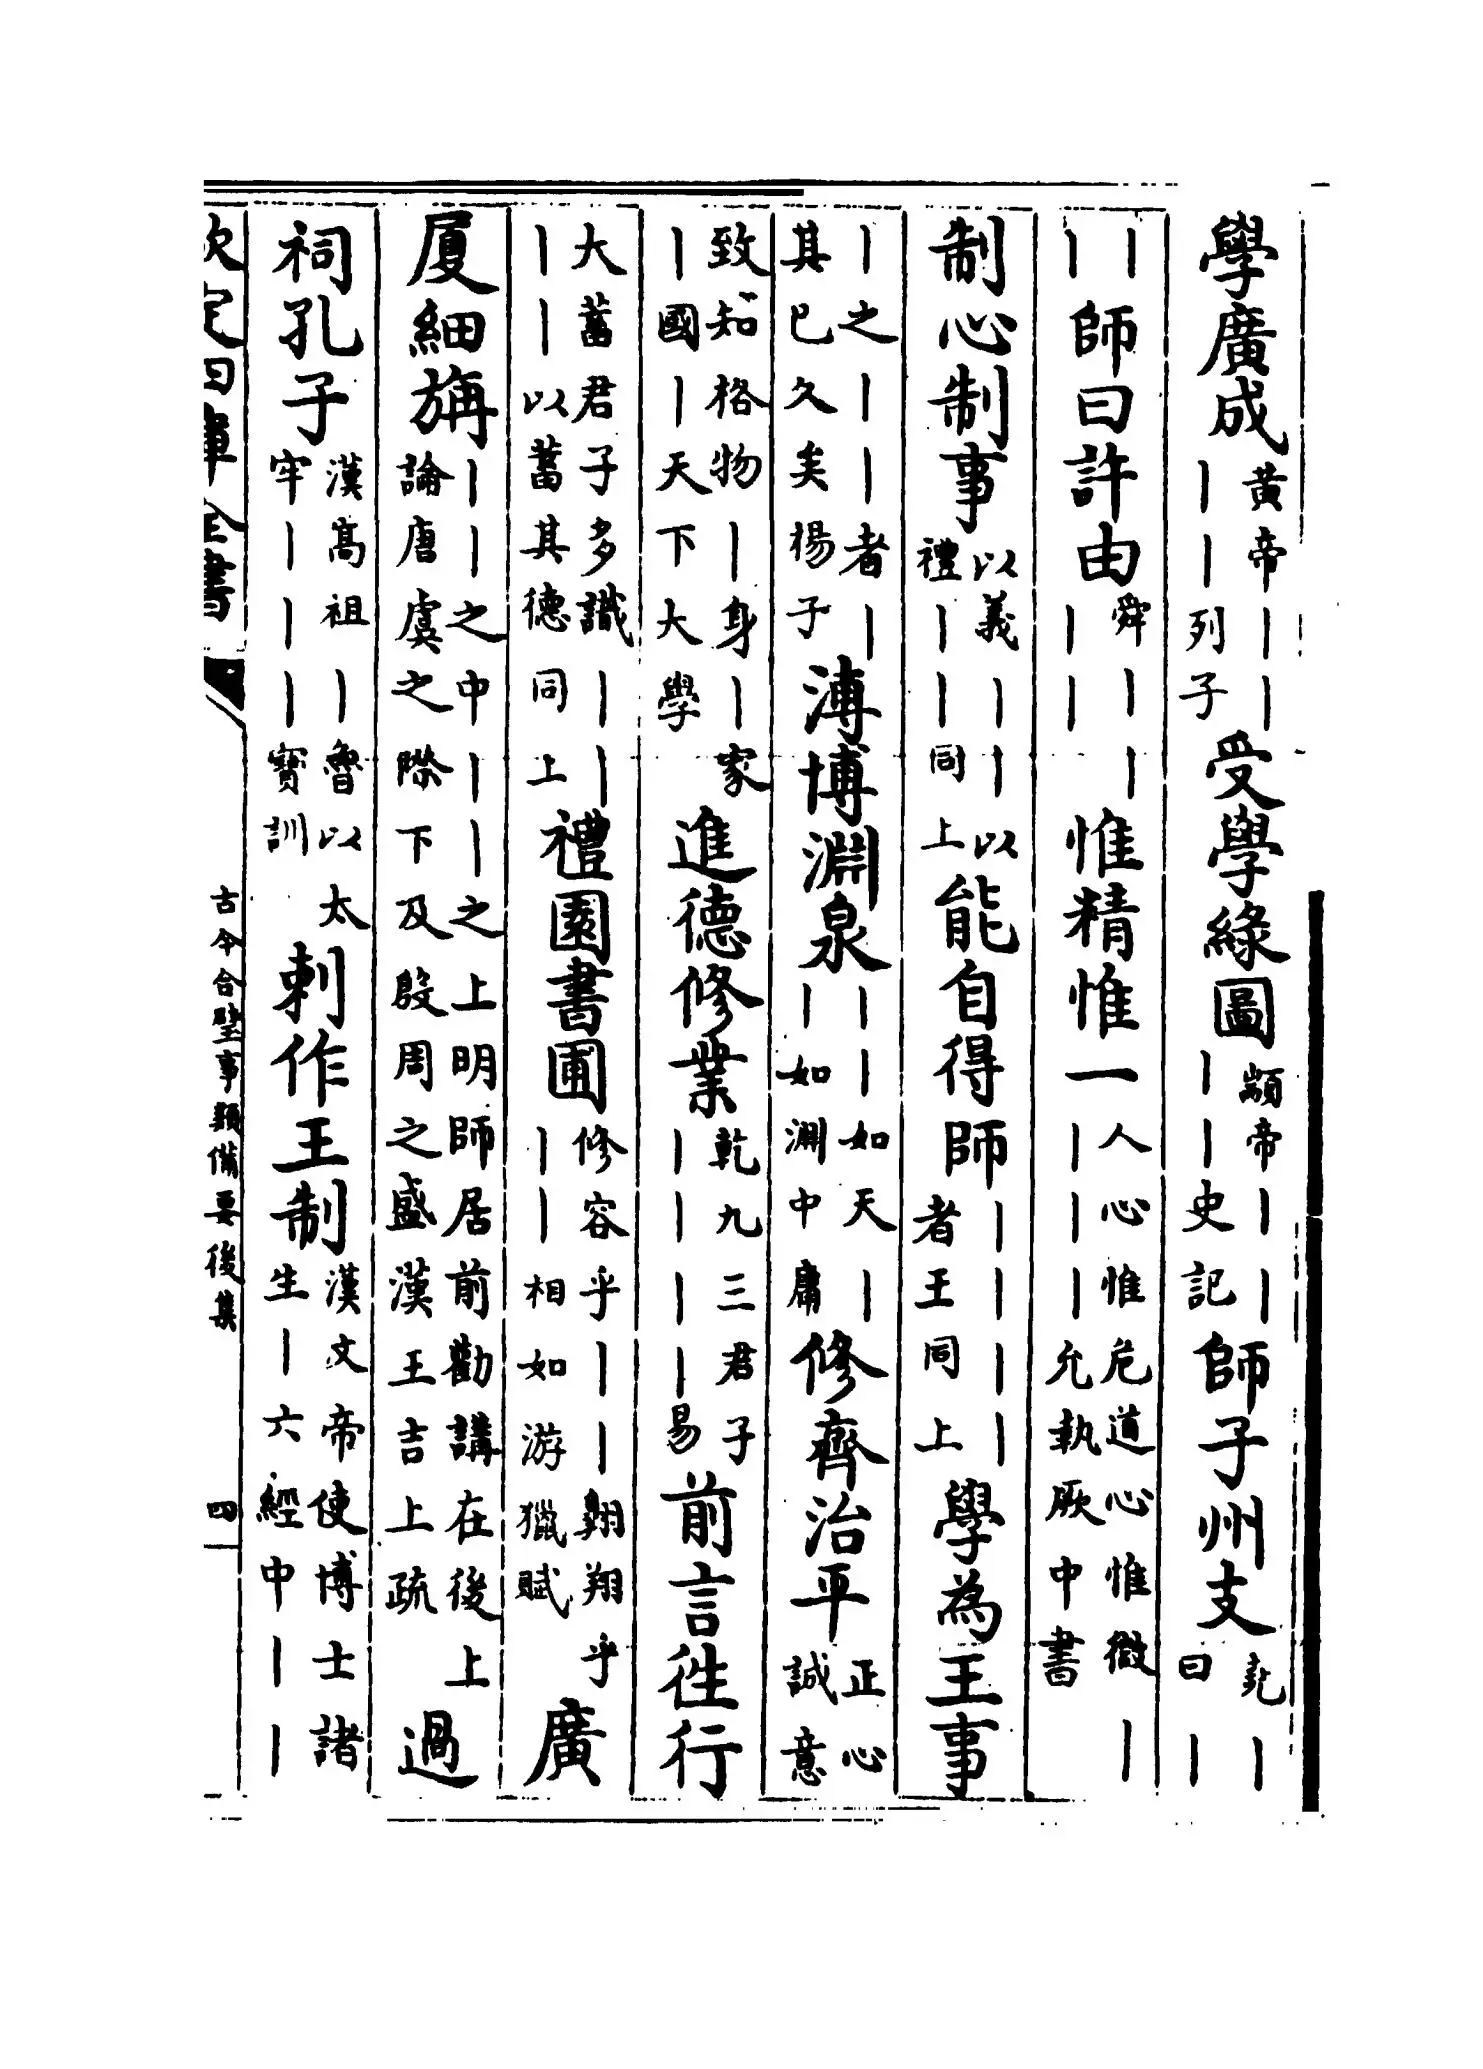 學廣成黃帝丨丨丨丨列子受學綠圖顓帝丨丨丨丨史記師子州支尭丨曰丨
丨丨師曰許由舜丨丨丨丨惟精惟一人心惟危道心惟微丨丨丨丨允執厥中書
制心制事以義丨丨以禮丨丨同上能自得師丨丨丨丨者王同上學為王事
丨之丨丨者丨其已久矣揚子溥博淵泉丨丨如天丨丨如淵中庸修齊治平正心誠意
致知格物丨身丨家丨國丨天下大學進德修業乾九三君子丨丨丨丨易前言徃行
大蓄君子多識丨丨丨丨以蓄其德同上禮園書圃修容乎丨丨翺翔乎丨丨相如游獵賦廣
厦細旃丨丨之中丨丨之上明師居前勸講在後上論唐虞之際下及殷周之盛漢王吉上疏過
祠孔子漢髙祖丨魯以太牢丨丨丨寶訓刺作王制漢文帝使博士諸生丨六經中丨丨
欽定四庫全書
古今合璧事類備要後集
四